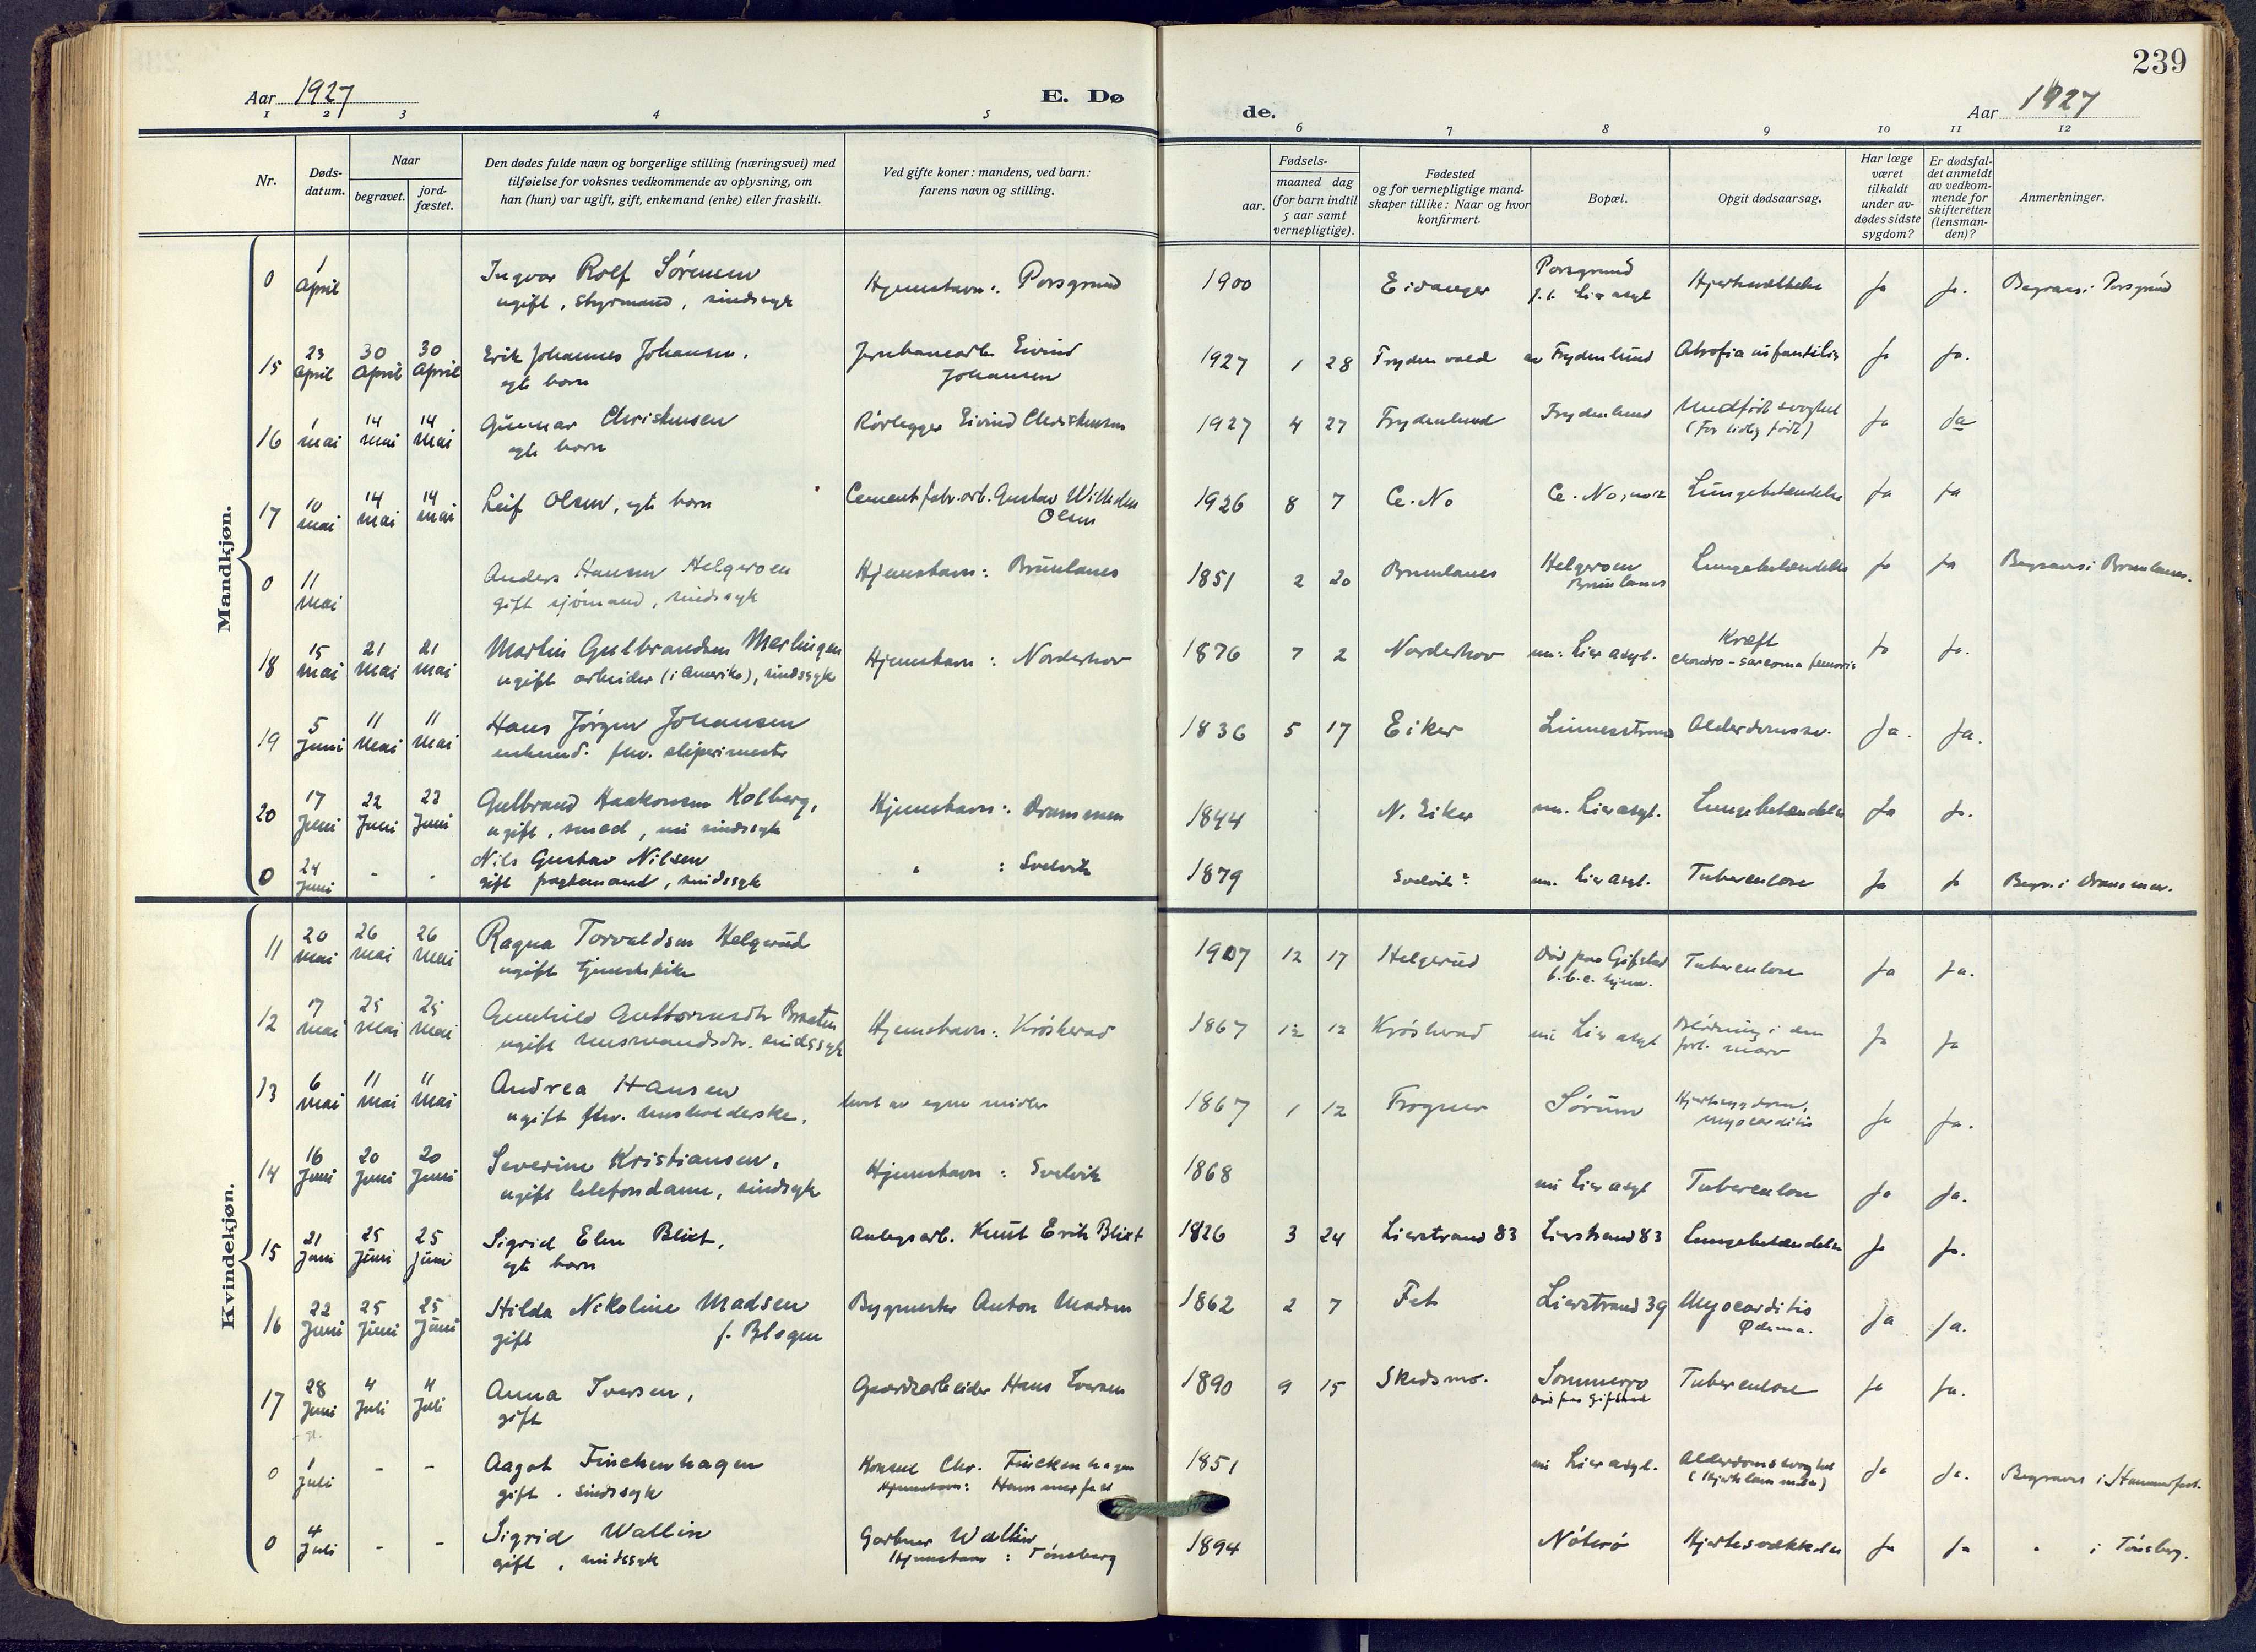 239
Aar 1927
E. Dø
de.
Aar 1927
1 2 3 4 5 6 7 8 9 10 11 12
Nr.
Døds-
datum.
Naar
begravet.
jord-
fæstet.
Den dødes fulde navn og borgerlige stilling (næringsvei) med
tilføielse for voksnes vedkommende av oplysning, om
han (hun) var ugift, gift, enkemand (enke) eller fraskilt.
Ved gifte koner: mandens, ved barn:
farens navn og stilling.
Fødsels-
aar.
maaned dag
(for barn indtil
5 aar samt
vernepligtige).
Fødested
og for vernepligtige mand-
skaper tillike: Naar og hvor
konfirmert.
Bopæl.
Opgit dødsaarsag.
Har læge
været
tilkaldt
under av-
dødes sidste
sygdom?
Er dødsfal-
det anmeldt
av vedkom-
mende for
skifteretten
(lensman-
den)?
Anmerkninger.
Mandkjøn.
0 1 April Ingvar Rolf Sørensen Hjemstavn: Porsgrund 1900 Eidanger Porsgrund Hjertesvækkelse Ja Ja. Begraves i Porsgrund
ugift, styrmand, sindssyk Lier asyl
15 23 April 30 April 30 April Erik Johannes Johansen, Jernbanearb. Eivind 1927 1 28 Frydenlund Atrofia infantilis Ja Ja.
egte barn Johansen
16 1 Mai 14 Mai 14 Mai Gunnar Christensen Rørlegger Eivind Christensen 1927 4 27 Frydenlund Frydenlund Medfødt svaghet Ja Ja
egte barn (For tidlig født)
17 10 Mai 14 Mai 14 Mai Leif Olsen, egte barn Cementfabr.arb. Gustav Wilhelm 1926 8 7 Ce-No Ce-No, Lungebetændelse Ja Ja
Olsen
0 11 Mai Anders Hansen Helgeroen Hjemstavn: Brunlanes 1851 2 20 Brunlanes Helgeroen Lungebetændelse Ja Ja Begraves i Brunlanes.
gift sjømand, sindssyk Brunlanes
18 15 Mai 21 Mai 21 Mai Martin Gulbrandsen Mærlingen Hjemstavn: Norderhov 1876 7 2 Norderhov Lier asyl. Kræft Ja Ja.
ugift arbeider (i Amerika), sindssyk chondro-sarcoma femoris
19 5 Juni 11 Mai 11 Mai Hans Jørgen Johansen 1836 5 17 Eiker Linnesstrand Alderdomssv. Ja. Ja.
enkemd. fhv. sliperimester
20 17 Juni 22 Juni 22 Juni Gulbrand Haakonsen Kolberg, Hjemstavn: Drammen 1844 N. Eiker Lier asyl. Lungebetændelse Ja Ja.
ugift, smed, nu sindssyk
0 24 Juni - - Nils Gustav Nilsen " : Svelvik 1879 Svelvik? Lier asyl. Tuberculose Ja Ja Begr. i Drammen.
gift fragtemand, sindssyk
Kvindekjøn.
11 20 Mai 26 Mai 26 Mai Ragna Torvaldsen Helgerud 1907 12 17 Helgerud Død paa Gifstad Tuberculose Ja Ja.
ugift tjenestepike t.b.c. hjem.
12 17 Mai 25 Mai 25 Mai Gunhild Guttormsdtr Braaten Hjemstavn: Krødsherad 1867 12 12 Krødsherad Lier asyl Blødning i den Ja Ja
ugift husmandsdtr. sindssyk forl. marv
13 6 Mai 11 Mai 11 Mai Andrea Hansen levet av egne midler 1867 1 12 Frogner Sørum Hjertesygdom, Ja Ja.
ugift fhv. husholderske. Myocarditis
14 16 Juni 20 Juni 20 Juni Severine Kristiansen, Hjemstavn: Svelvik 1868 Lier asyl Tuberculose Ja Ja.
ugift telefondame, sindssyk
15 21 Juni 25 Juni 25 Juni Sigrid Elen Blixt, Anlegsarb. Knut Erik Blixt 1826 3 24 Lierstrand 83 Lierstrand 83 Lungebetændelse Ja Ja.
egte barn
16 22 Juni 25 Juni 25 Juni Hilda Nikoline Madsen Bygmester Anton Madsen 1862 2 7 Fet Lierstrand 39 Myocarditis Ja Ja.
gift f. Blegen Ødema.
17 28 Juni 4 Juli 4 Juli Anna Iversen, Gaardsarbeider Hans Iversen 1890 9 15 Skedsmo. Sommerro Tuberculose Ja Ja.
gift Død paa Gifstad
0 1 Juli - - Aagot Finckenhagen Konsul Chr. Finckenhagen 1851 Lier asyl. Alderdomssvaghet Ja Ja. Begraves i Hammerfest.
gift. sindssyk Hjemstavn: Hammerfest (Hjertelammelse)
0 4 Juli - - Sigrid Wallin Gartner Wallin 1894 Nøterø Hjertesvækkelse Ja Ja " i Tønsberg.
gift, sindssyk Hjemstavn: Tønsberg